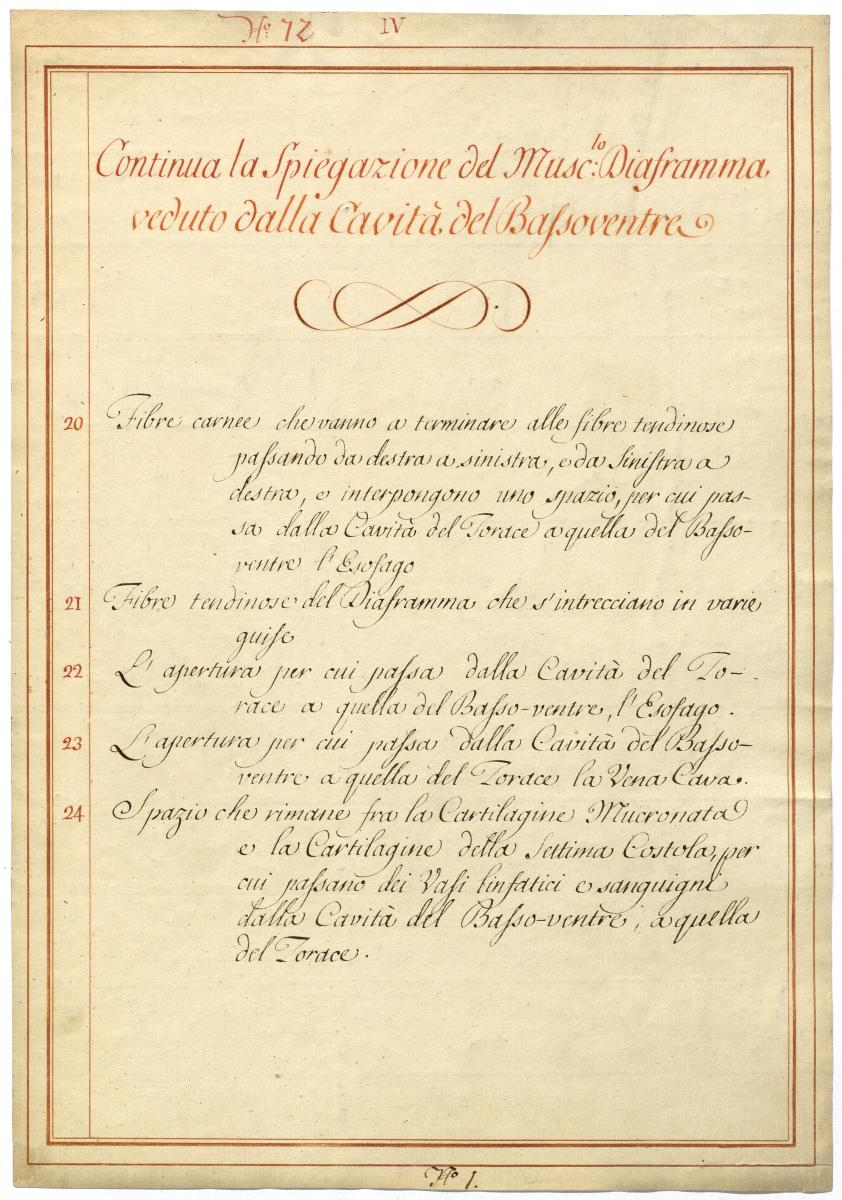 N.º 72 IV
Continua la Spiegazione del Musc:lo Diaframma,
veduto dalla Cavità del Baſsoventre
20 Fibre carnee che vanno a terminare alle fibre tendinose
paſsando da destra a sinistra, e da Siniſtra a
destra, e interpongono uno spazio, per cui pas-
sa dalla Cavità del Torace a quella del Baſso-
ventre l'Esofago
21 Fibre tendinose del Diaframma che s'intrecciano in varie
guiſe
22 L'apertura per cui paſsa dalla Cavità del To-
race a quella del Baſso-ventre, l'Esofago.
23 L'apertura per cui paſsa dalla Cavità del Baſso-
ventre a quella del Torace la Vena Cava.
24 Spazio che rimane fra la Cartilagine Mucronata
e la Cartilagine della Settima Costola, per
cui paſsano dei Vaſi linfatici e sanguigni
dalla Cavità del Baſso-ventre, a quella
del Torace.
N.º 1.